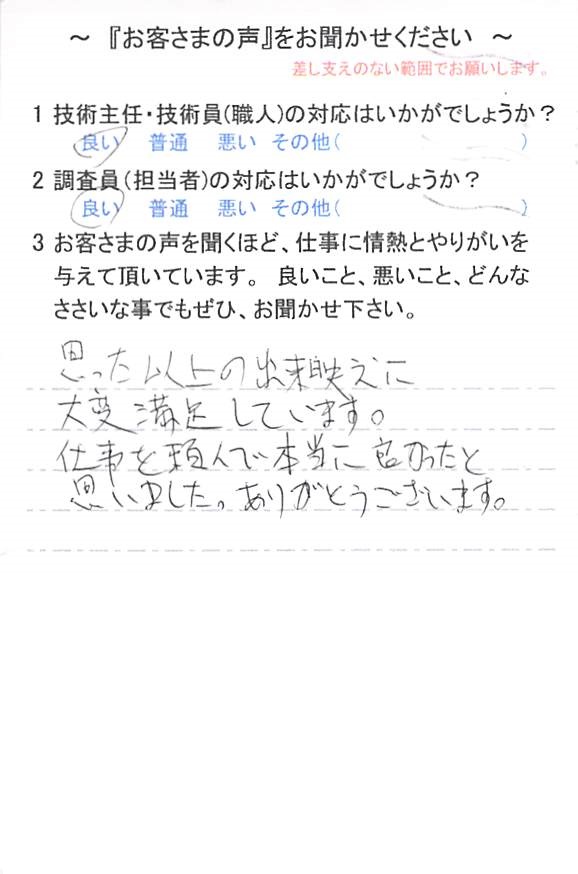 ～ 『お客さまの声』をお聞かせください ～
差し支えのない範囲でお願いします。
1 技術主任・技術員(職人)の対応はいかがでしょうか？
良い 普通 悪い その他( )
2 調査員(担当者)の対応はいかがでしょうか？
良い 普通 悪い その他( )
3 お客さまの声を聞くほど、仕事に情熱とやりがいを
与えて頂いています。 良いこと、悪いこと、どんな
ささいな事でもぜひ、お聞かせ下さい。
思った以上の出来映えに
大変満足しています。
仕事を頼んで本当に良かったと
思いました。ありがとうございます。